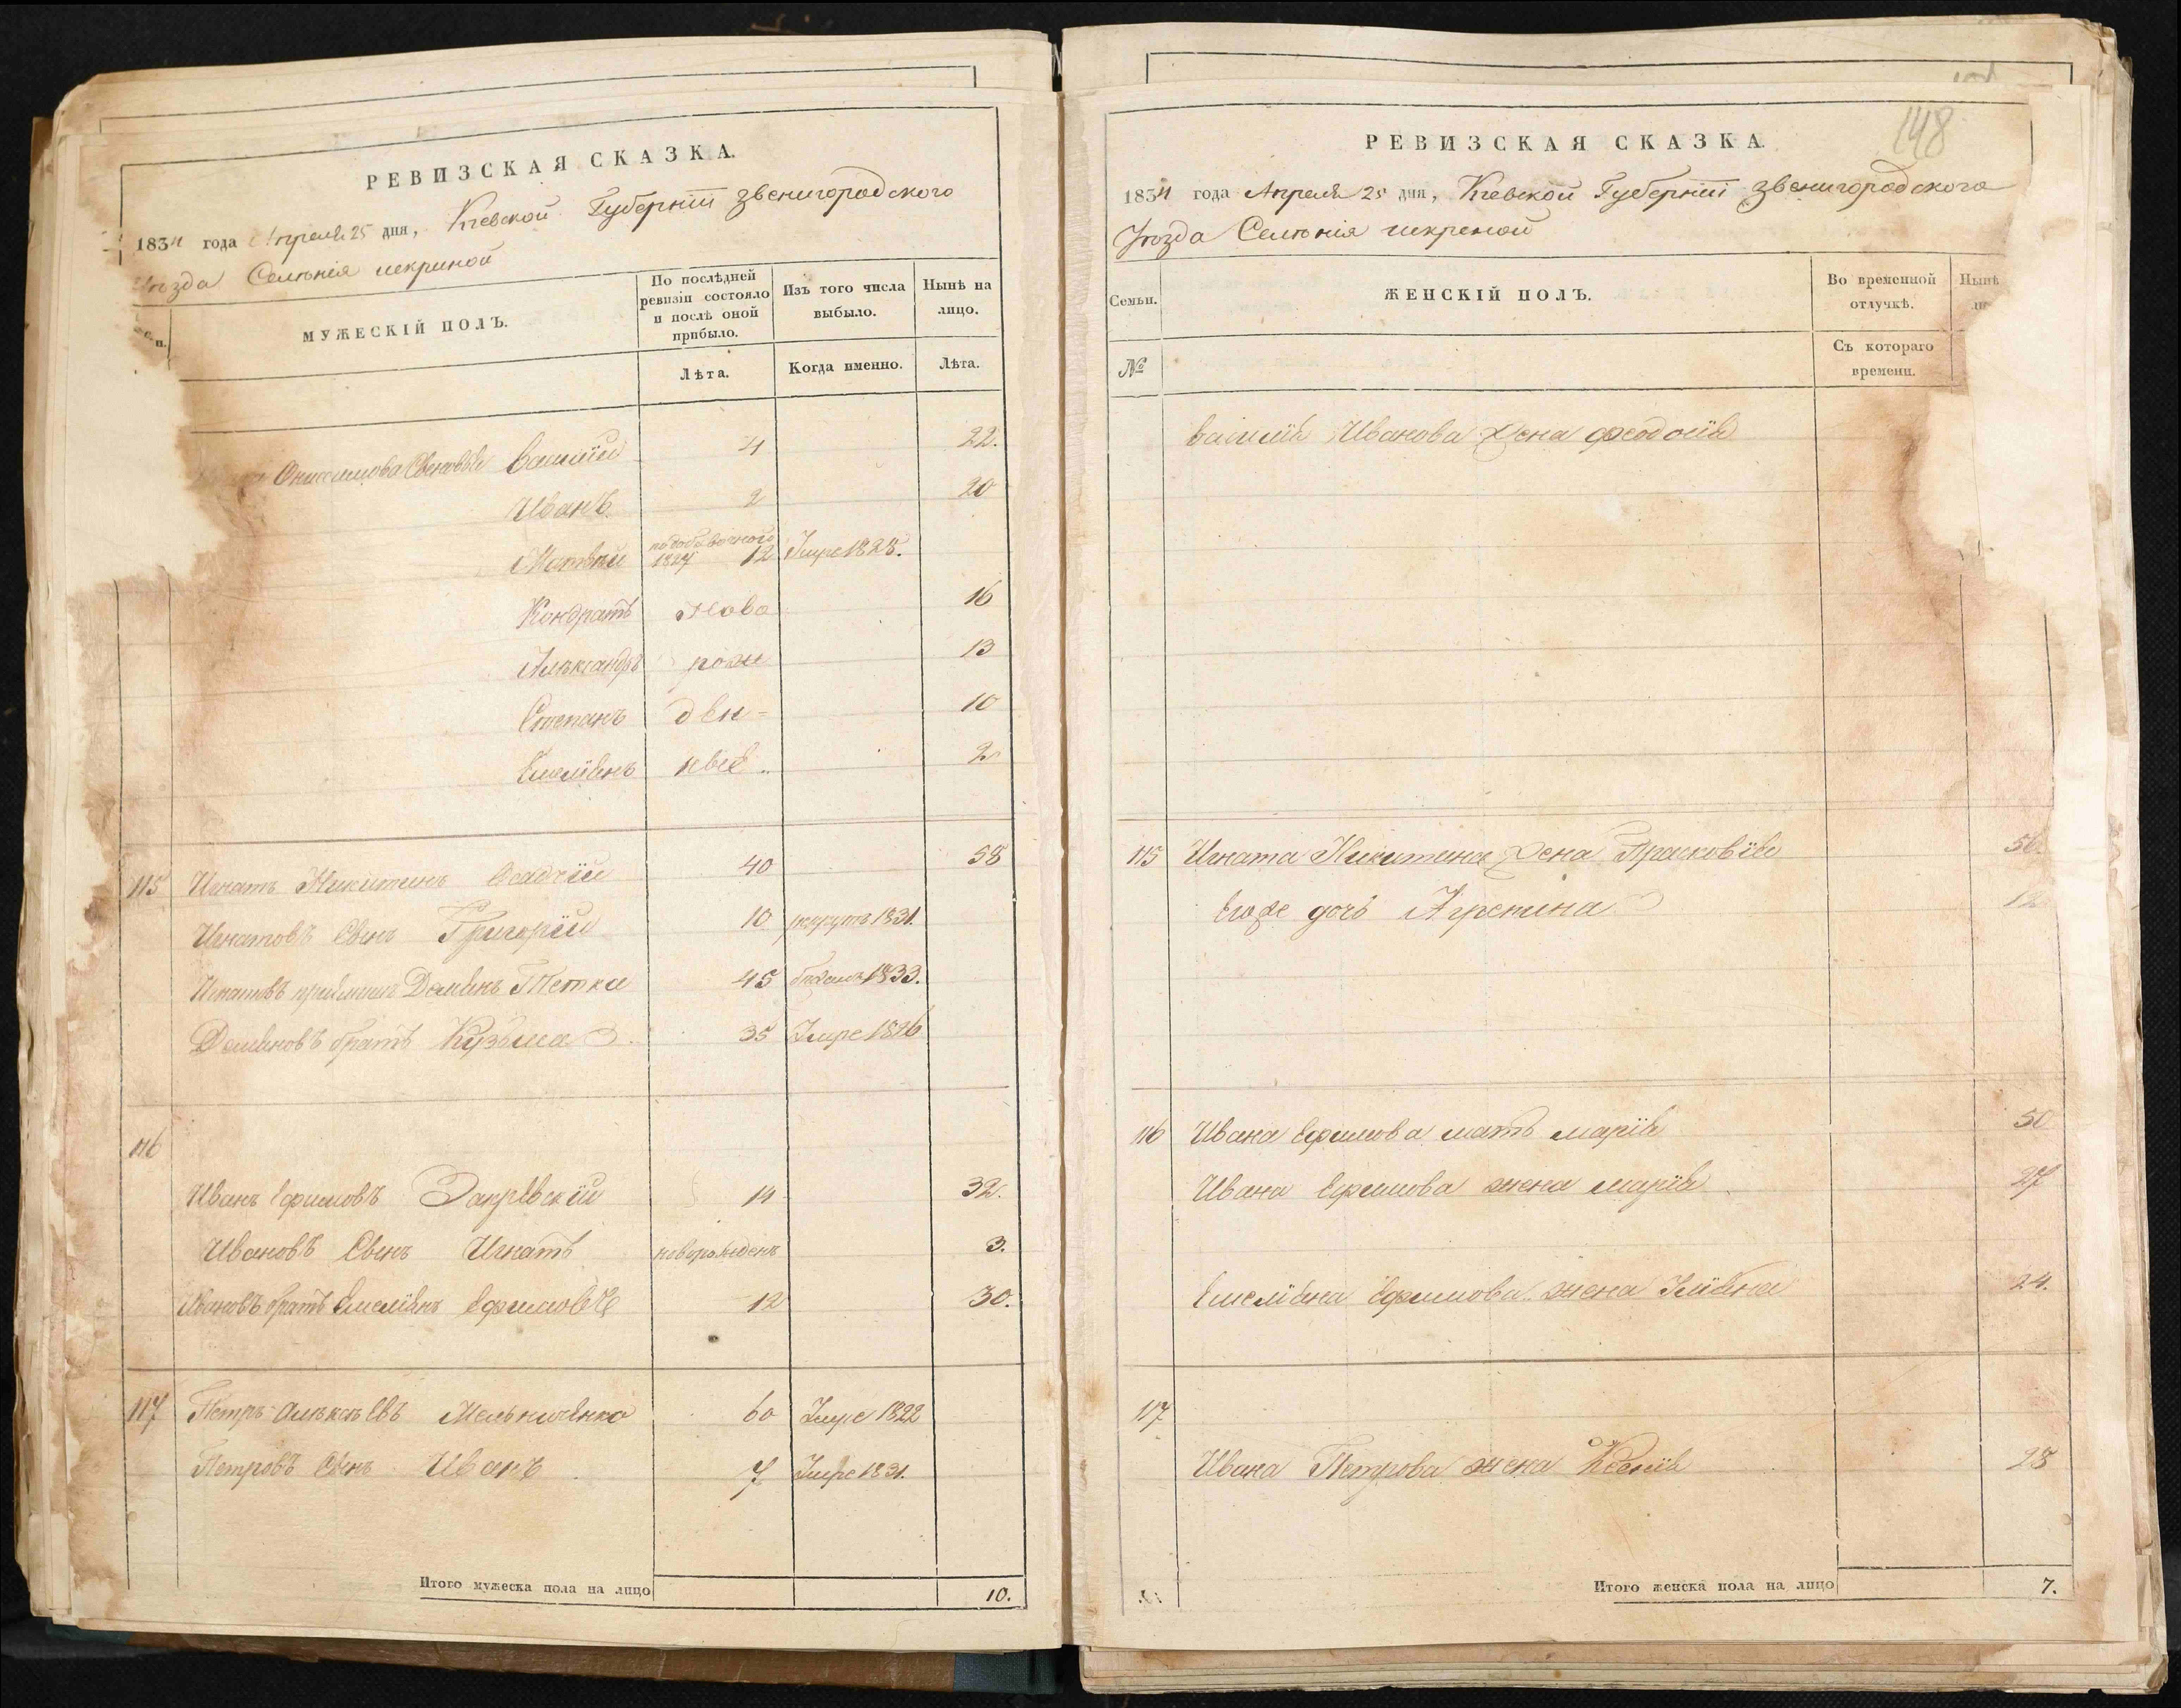 РЕВИЗСКАЯ СКАЗКА.
1834 года Апреля 25 дня, Киевской Губернiи Звенигородского
Уѣзда Селѣнія искриной
МУЖЕСКІЙ ПОЛЪ.
По послѣдней ревизіи состояло и послѣ оной прибыло.
Изъ того числа выбыло.
Нынѣ на лицо.
Лѣта.
Когда именно.
Лѣта.
Ониссимова Сыновья Василій 4 22.
Иванъ 2 20
Матвѣй по добавочного 1827 12 Умре 1828.
Кондратъ Ново 16
Алѣксандръ рож 13
Степанъ ден= 10
Емеліянъ ные „ 2
115 Игнатъ Никитинъ Осадчій 40 58
Игнатовъ Сынъ Григорій 10 рекрутъ 1831.
Игнатовъ приймишъ Демянъ Петка 45 бежалъ 1833.
Демяновъ братъ Кузьма 35 Умре 1826
116
Иванъ Ефимовъ Закревскій 14 32.
Ивановъ Сынъ Игнатъ новорожденъ 3.
Ивановъ братъ Емеліянъ Ефимовъ 12 30.
117 Петръ Алѣксѣевъ Мельниченко 60 Умре 1822
Петровъ Сынъ Иванъ 7 Умре 1831.
Итого мужеска пола на лицо 10.
148
РЕВИЗСКАЯ СКАЗКА.
1834 года Апреля 25 дня, Киевской Губерніи Звенигородского
Уѣзда Селѣнія искреной
Семьи.
ЖЕНСКІЙ ПОЛЪ.
Во временной отлучкѣ.
Нынѣ
№
Съ котораго времени.
Василія Иванова жена Феодосія
115 Игната Никитина жена Прасковія 56.
Егоже дочь Агрепина 12
116 Ивана Ефимова мать марія 50
Ивана Ефимова жена марія 27
Емеліяна Ефимова жена Уліяна 24.
117
Ивана Петрова жена Ксенія 28
Итого женска пола на лицо 7.